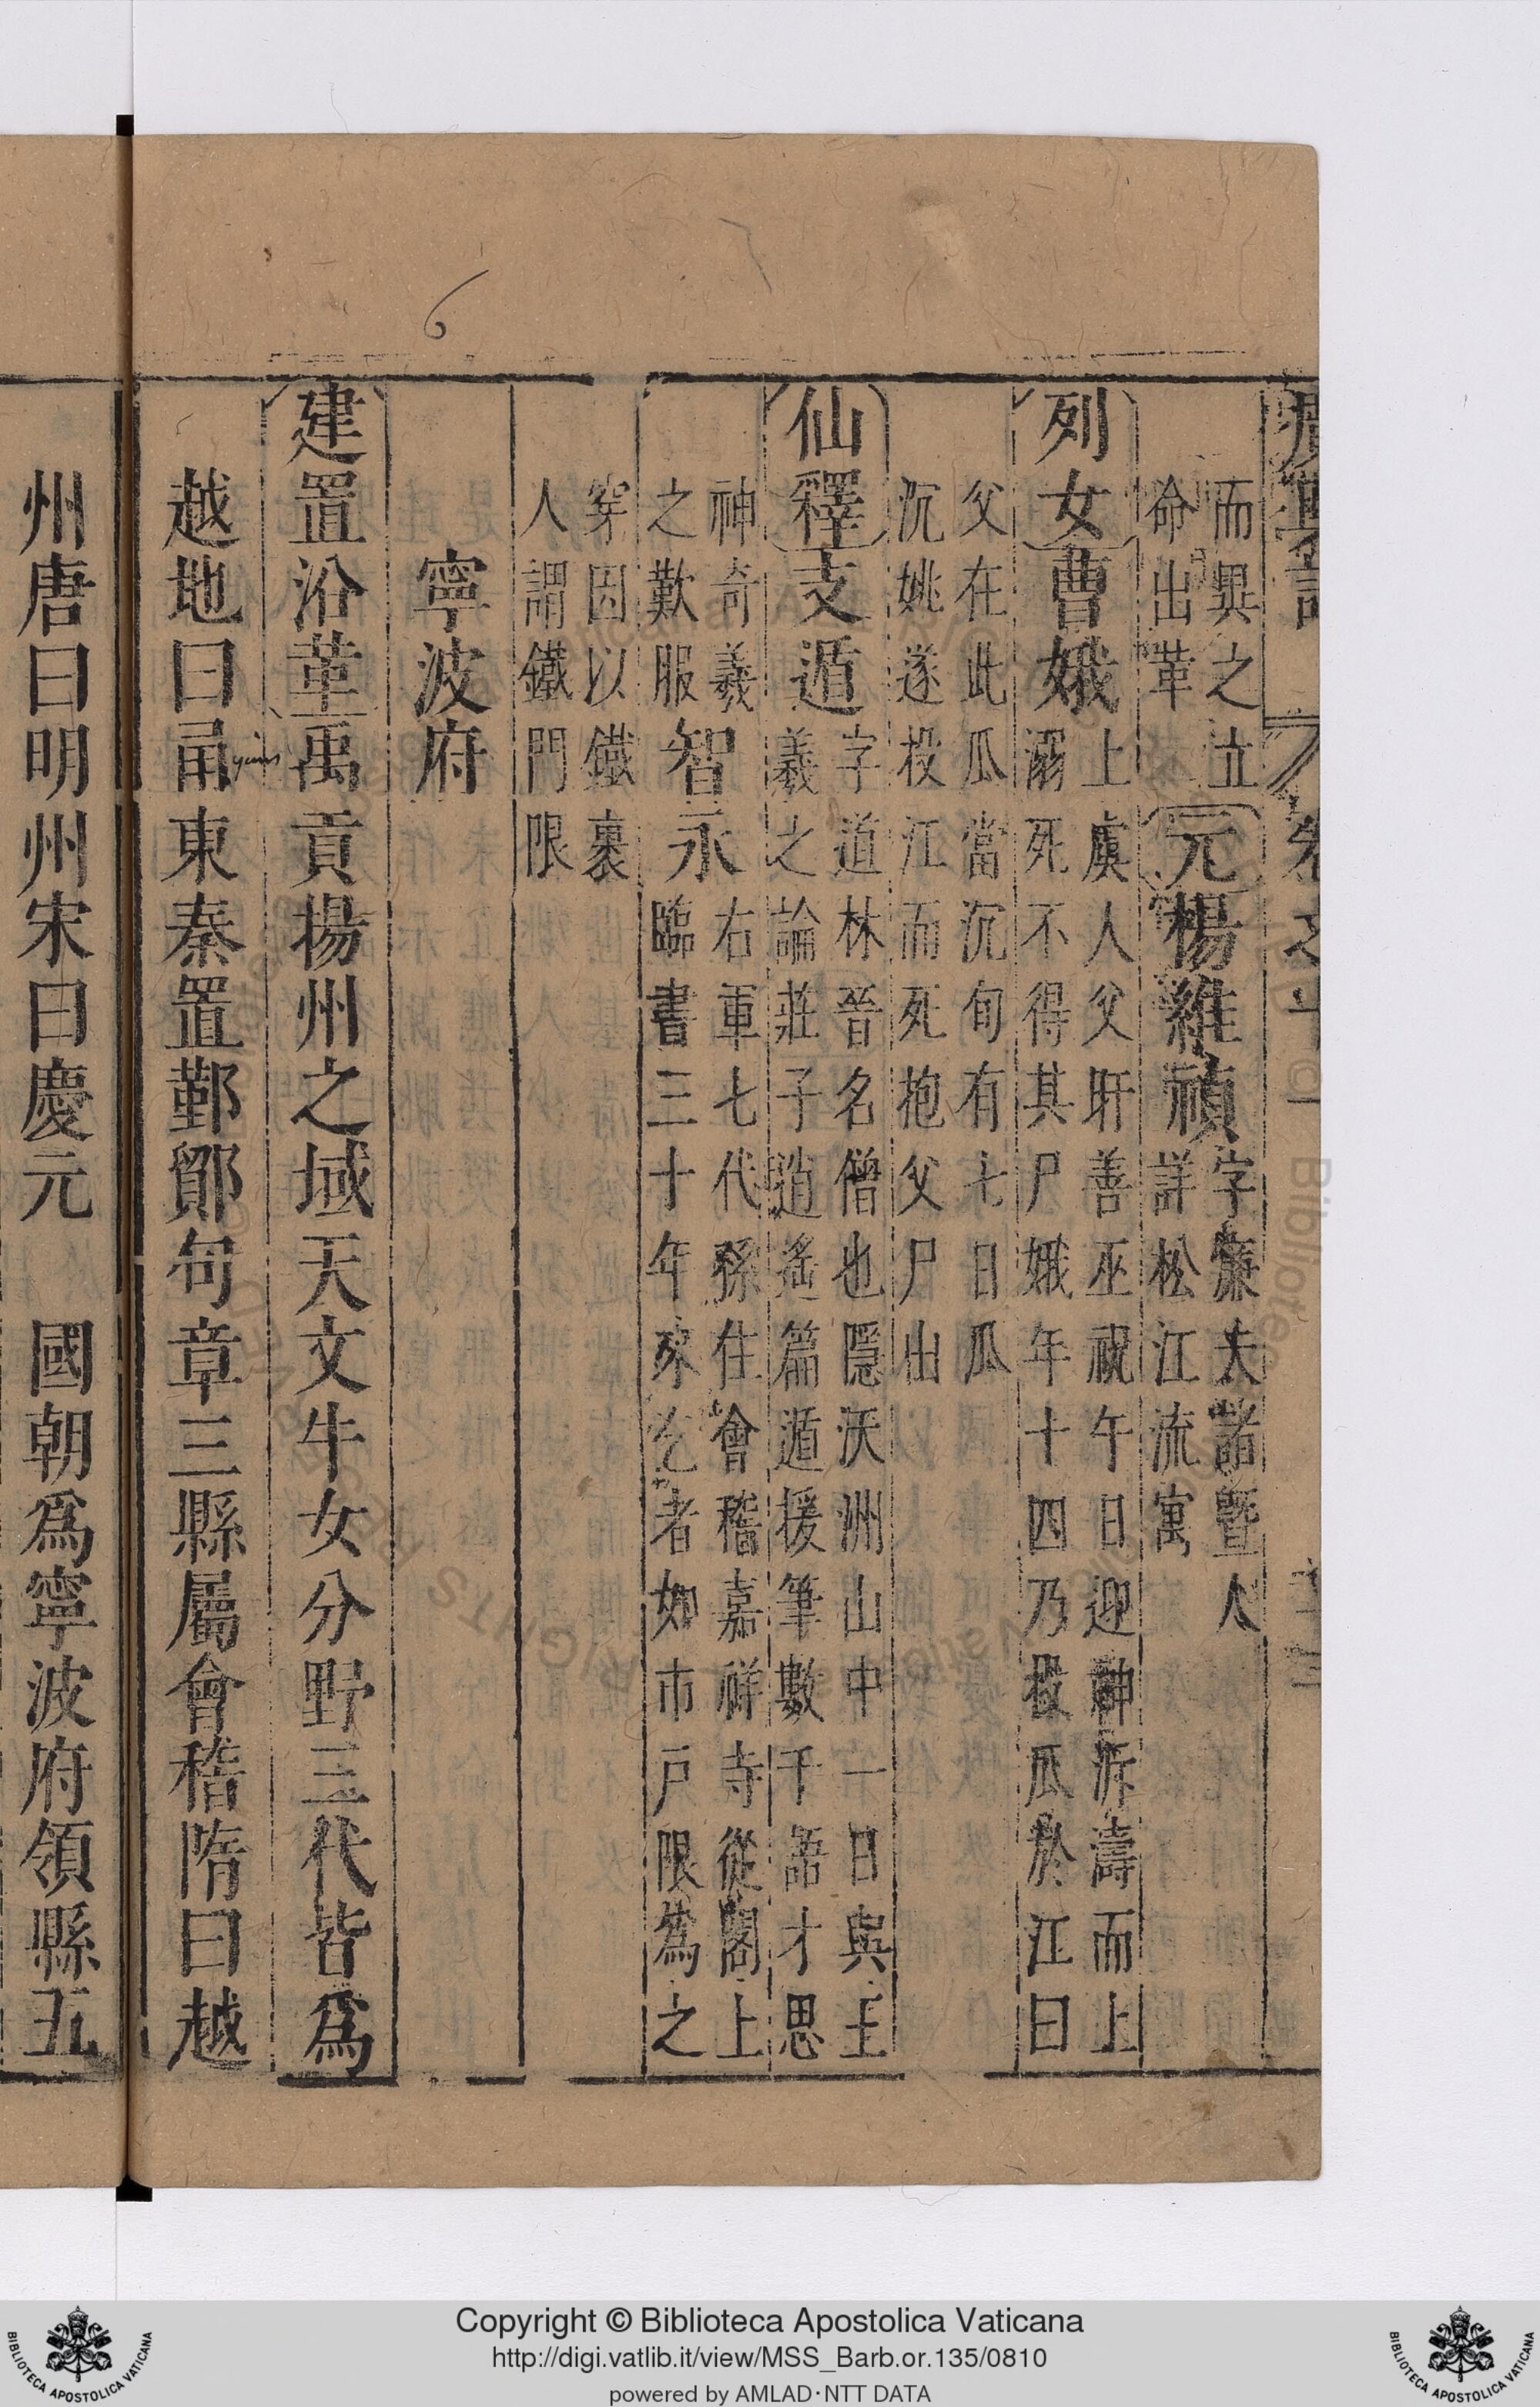 而異之立
命出葦
元 楊維禎
字廉夫諸暨人
詳松江流寓
列女
曹娥
上虞人父盱善巫祝午日迎神泝濤而上
溺死不得其尸娥年十四乃投瓜於江曰
父在此瓜當沉旬有七日瓜
沉姚遂投江而死抱父尸出
仙釋
支遁
字道林晉名僧也隱沃洲山中一日與王
羲之論莊子逍遙篇遁援筆數千語才思
神奇羲
之歎服
智永
右軍七代孫住會稽嘉祥寺從閣上
臨書三十年來乞者如市戶限為之
穿因以鐵裹
人謂鐵門限
寧波府
建置沿革
禹貢揚州之域天文牛女分野三代皆爲
越地曰甬東秦置鄞鄮句章三縣屬會稽隋曰越
州唐曰明州宋曰慶元 國朝爲寧波府領縣五
6
Copyright © Biblioteca Apostolica Vaticana
http://digi.vatlib.it/view/MSS_Barb.or.135/0810
powered by AMLAD·NTT DATA
BIBLIOTECA APOSTOLICA VATICANA
BIBLIOTECA APOSTOLICA VATICANA